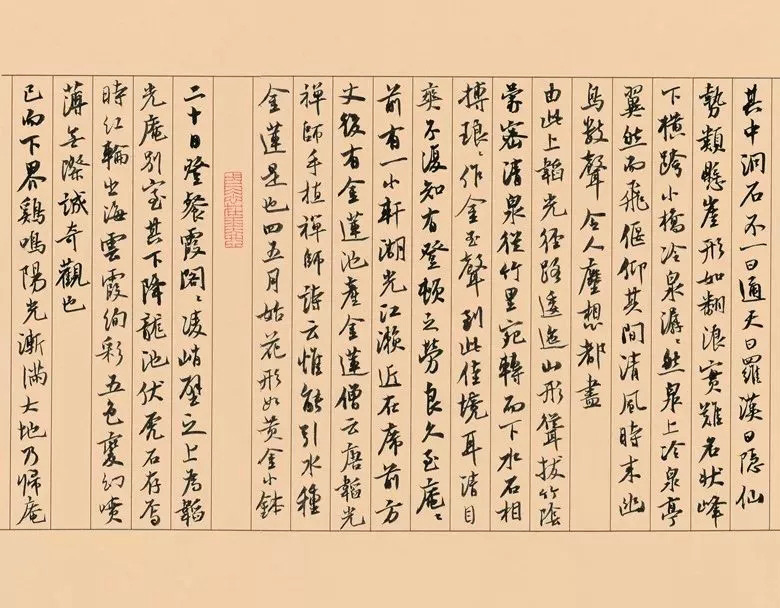 其中洞石不一曰通天曰羅漢曰隱仙
勢類懸崖形如翻浪實難名狀峰
下橫跨小橋冷泉潺〻然泉上冷泉亭
翼然而飛偃仰其間清風時來幽
鳥數聲令人塵想都盡
由此上韜光徑路逶迤山形聳拔竹陰
蒙密清泉從竹里宛轉而下水石相
搏琅〻作金玉聲到此佳境耳清目
爽不復知有登頓之勞良久至庵〻
前有一小軒湖光江瀨近在席前方
丈後有金蓮池產金蓮僧云唐韜光
禪師手植禪師詩云惟能引水種
金蓮是也四五月始花形如黃金小缽
二十日登餐霞閣〻凌峭壁之上為韜
光庵別室其下降龍池伏虎石存焉
時紅輪出海雲霞絢彩五色變幻噴
薄無際誠奇觀也
已而下界鷄鳴陽光漸滿大地乃歸庵